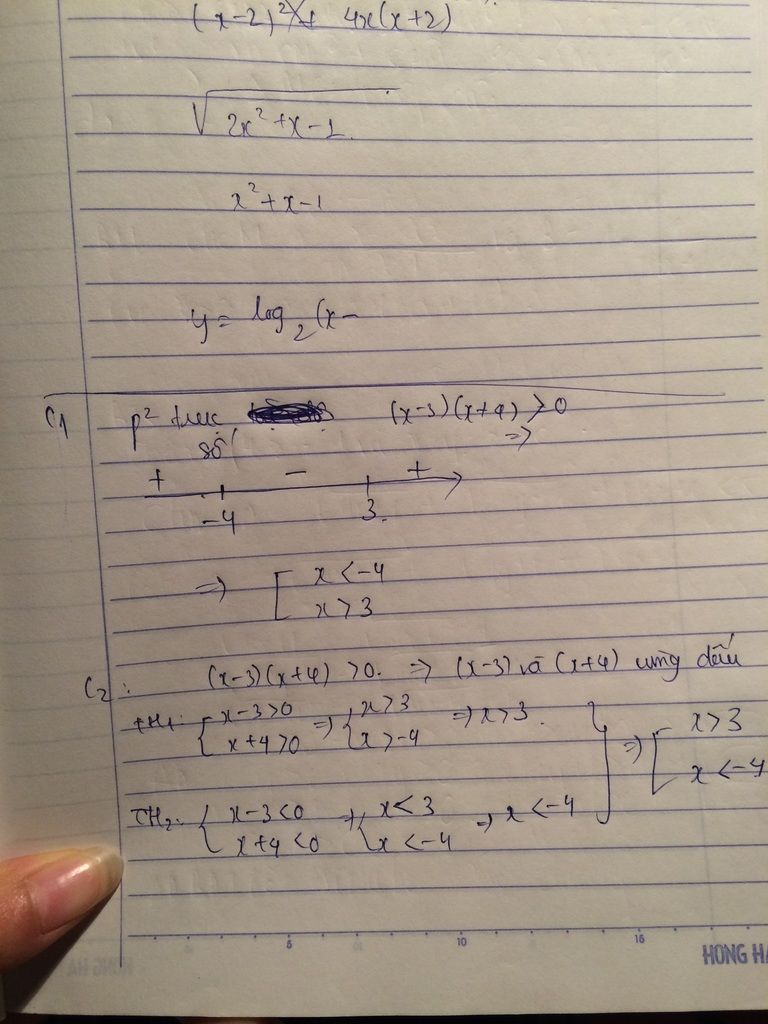 (x-2)² + 4x(x+2)
√(2x²+x-1)
x²+x-1
y = log₂(x-
C1 p² trục (x-3)(x+4) > 0
số ⇒
+ - +
-4 3
⇒ [ x < -4
x > 3
C2: (x-3)(x+4) > 0. ⇒ (x-3) và (x+4) cùng dấu
TH1: { x-3>0 ⇒ { x>3 ⇒ x>3. } ⇒ [ x>3
x+4>0 x>-4 x<-4
TH2: { x-3<0 ⇒ { x<3 ⇒ x<-4
x+4<0 x<-4
5 10 15
HONG HA